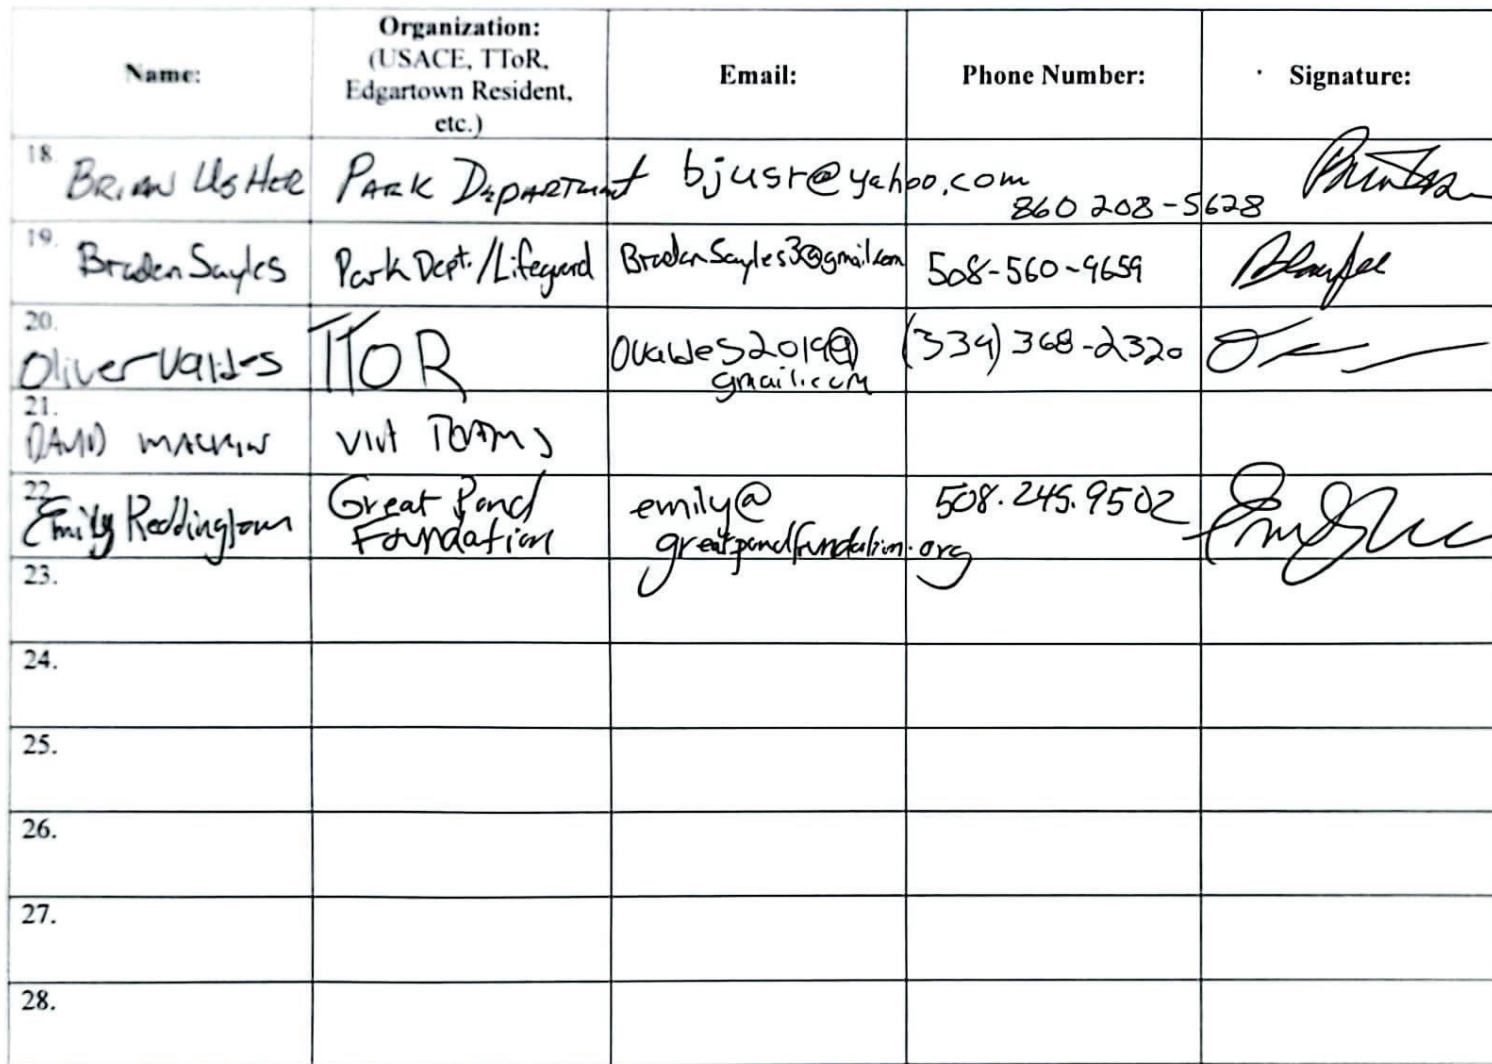 Name:
Organization:
(USACE, TToR,
Edgartown Resident,
etc.)
Email:
Phone Number:
Signature:
18. BRIAN USHER PARK DEPARTMENT bjusr@yahoo.com 860 208-5628
19. Braden Sayles Park Dept./Lifeguard BradenSayles3@gmail.com 508-560-9659
20. Oliver Valdes TToR ovaldes2019@
gmail.com
(339) 368-2320
21. DAVID VIA TEAMS
22. Emily Reddington Great Pond
Foundation
emily@
greatpondfoundation.org
508.245.9502
23.
24.
25.
26.
27.
28.